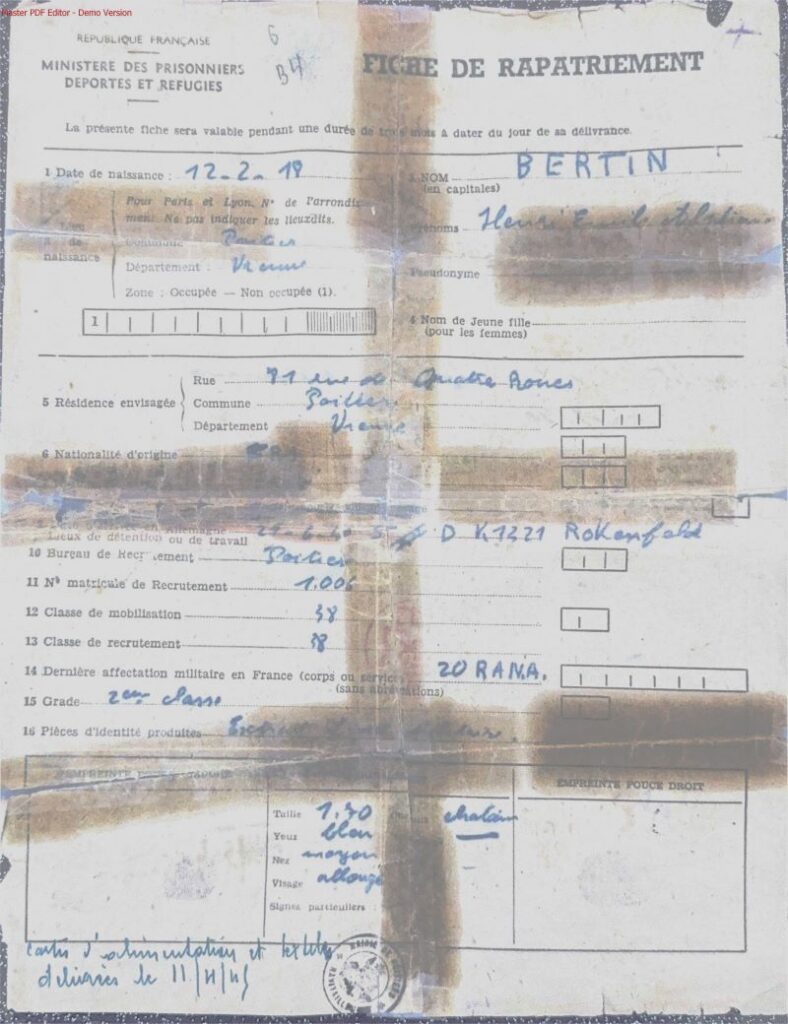 Master PDF Editor - Demo Version
RÉPUBLIQUE FRANÇAISE
MINISTERE DES PRISONNIERS
DEPORTES ET REFUGIES
6
B4
FICHE DE RAPATRIEMENT
La présente fiche sera valable pendant une durée de trois mois à dater du jour de sa délivrance.
1 Date de naissance : 12-2-18
3 NOM BERTIN
(en capitales)
Pour Paris et Lyon, N° de l'arrondisse-
ment. Ne pas indiquer les lieuxdits.
Prénoms Henri Emile
2 Lieu de naissance
Commune Poitiers
Département : Vienne
Pseudonyme
Zone : Occupée — Non occupée (1).
1
4 Nom de Jeune fille
(pour les femmes)
5 Résidence envisagée
Rue 71 rue des Quatre Roues
Commune Poitiers
Département Vienne
6 Nationalité d'origine
Lieux de détention ou de travail D K1221 Rokenfeld
10 Bureau de Recrutement Poitiers
11 N° matricule de Recrutement 1.006
12 Classe de mobilisation 38
13 Classe de recrutement 38
14 Dernière affectation militaire en France (corps ou service) 20 RANA.
(sans abréviations)
15 Grade 2ème classe
16 Pièces d'identité produites
EMPREINTE POUCE DROIT
Taille 1,70 chatain
Yeux bleu
Nez moyen
Visage allongé
Signes particuliers :
cartes d'alimentation et textiles
délivrées le 11/4/45